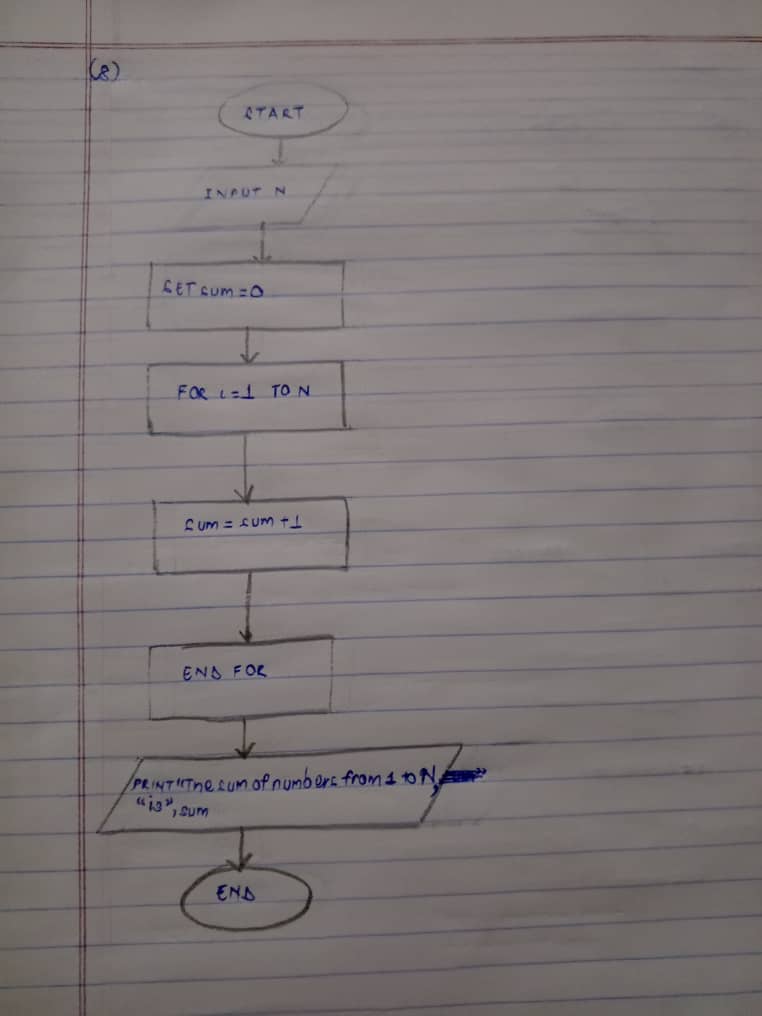 (8)
START
INPUT N
SET sum = 0
FOR i = 1 TO N
sum = sum + 1
END FOR
PRINT "The sum of numbers from 1 to N,
"is", sum
END